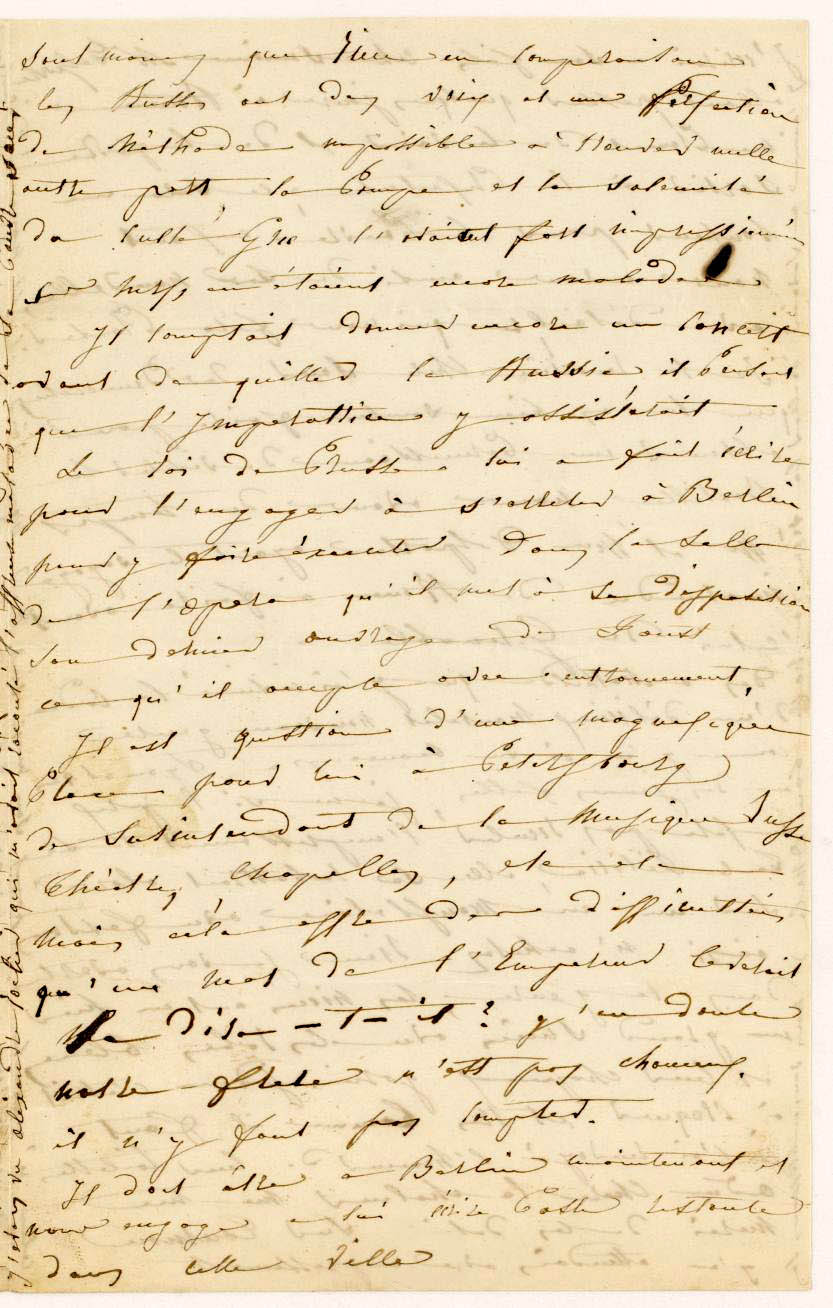 sont moins que rien en comparaison
les Russes ont des voix et une perfection
de Méthode impossible à trouver nulle
autre part la Pompe et la solemnité
du culte Grec l'avaient fort impressionné
ses nerfs en étaient encore malades
Il comptait donner encore un concert
avant de quitter la Russie il Pensait
que l'Imperatrice y assisterait
Le roi de Prusse lui a fait écrire
pour l'engager à s'arreter à Berlin
pour y faire éxecuter dans la salle
de l'opera qu'il met à sa disposition
son dernier ouvrage de Faust
ce qu'il accepte avec
Il est question d'une magnifique
Place pour lui à Petersbourg
de Surintendant de la Musique russe
Théatres, Chapelles, etc etc
mais cela offre des difficultés
qu'un mot de l'Empereur leverait
Le Dira-t-il? j'en doute
notre frere n'est pas chanceux.
il n'y faut pas compter.
Il doit être a Berlin maintenant et
nous engage a lui écrire Poste restante
dans cette ville
J'etais chez alexandre Rocher qui m'avait raconté l'affreuse maladie de sa pauvre soeur